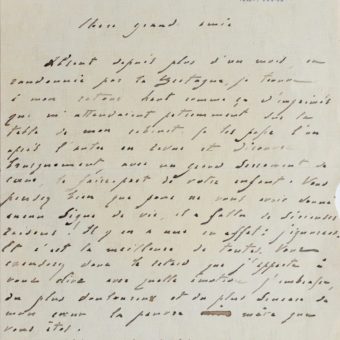 Chère grande amie
Absent depuis plus d'un mois, en
randonnée par la Bretagne, je trouve
à mon retour haut comme ça d'imprimés
qui m'attendaient patiemment sur la
table de mon cabinet. Je les passe l'un
après l'autre en revue et découvre
tragiquement avec un grand serrement de
cœur, le faire-part de votre enfant. Vous
pensez bien que pour ne vous avoir donné
aucun signe de vie, il a fallu de sérieuses
raisons ! Il y en a une en effet : j'ignorais
Et c'est la meilleure de toutes. Vous
excuserez donc le retard que j'apporte à
vous dire avec quelle émotion j'embrasse,
du plus douloureux et du plus sincère de
mon cœur la pauvre mère que
vous êtes.